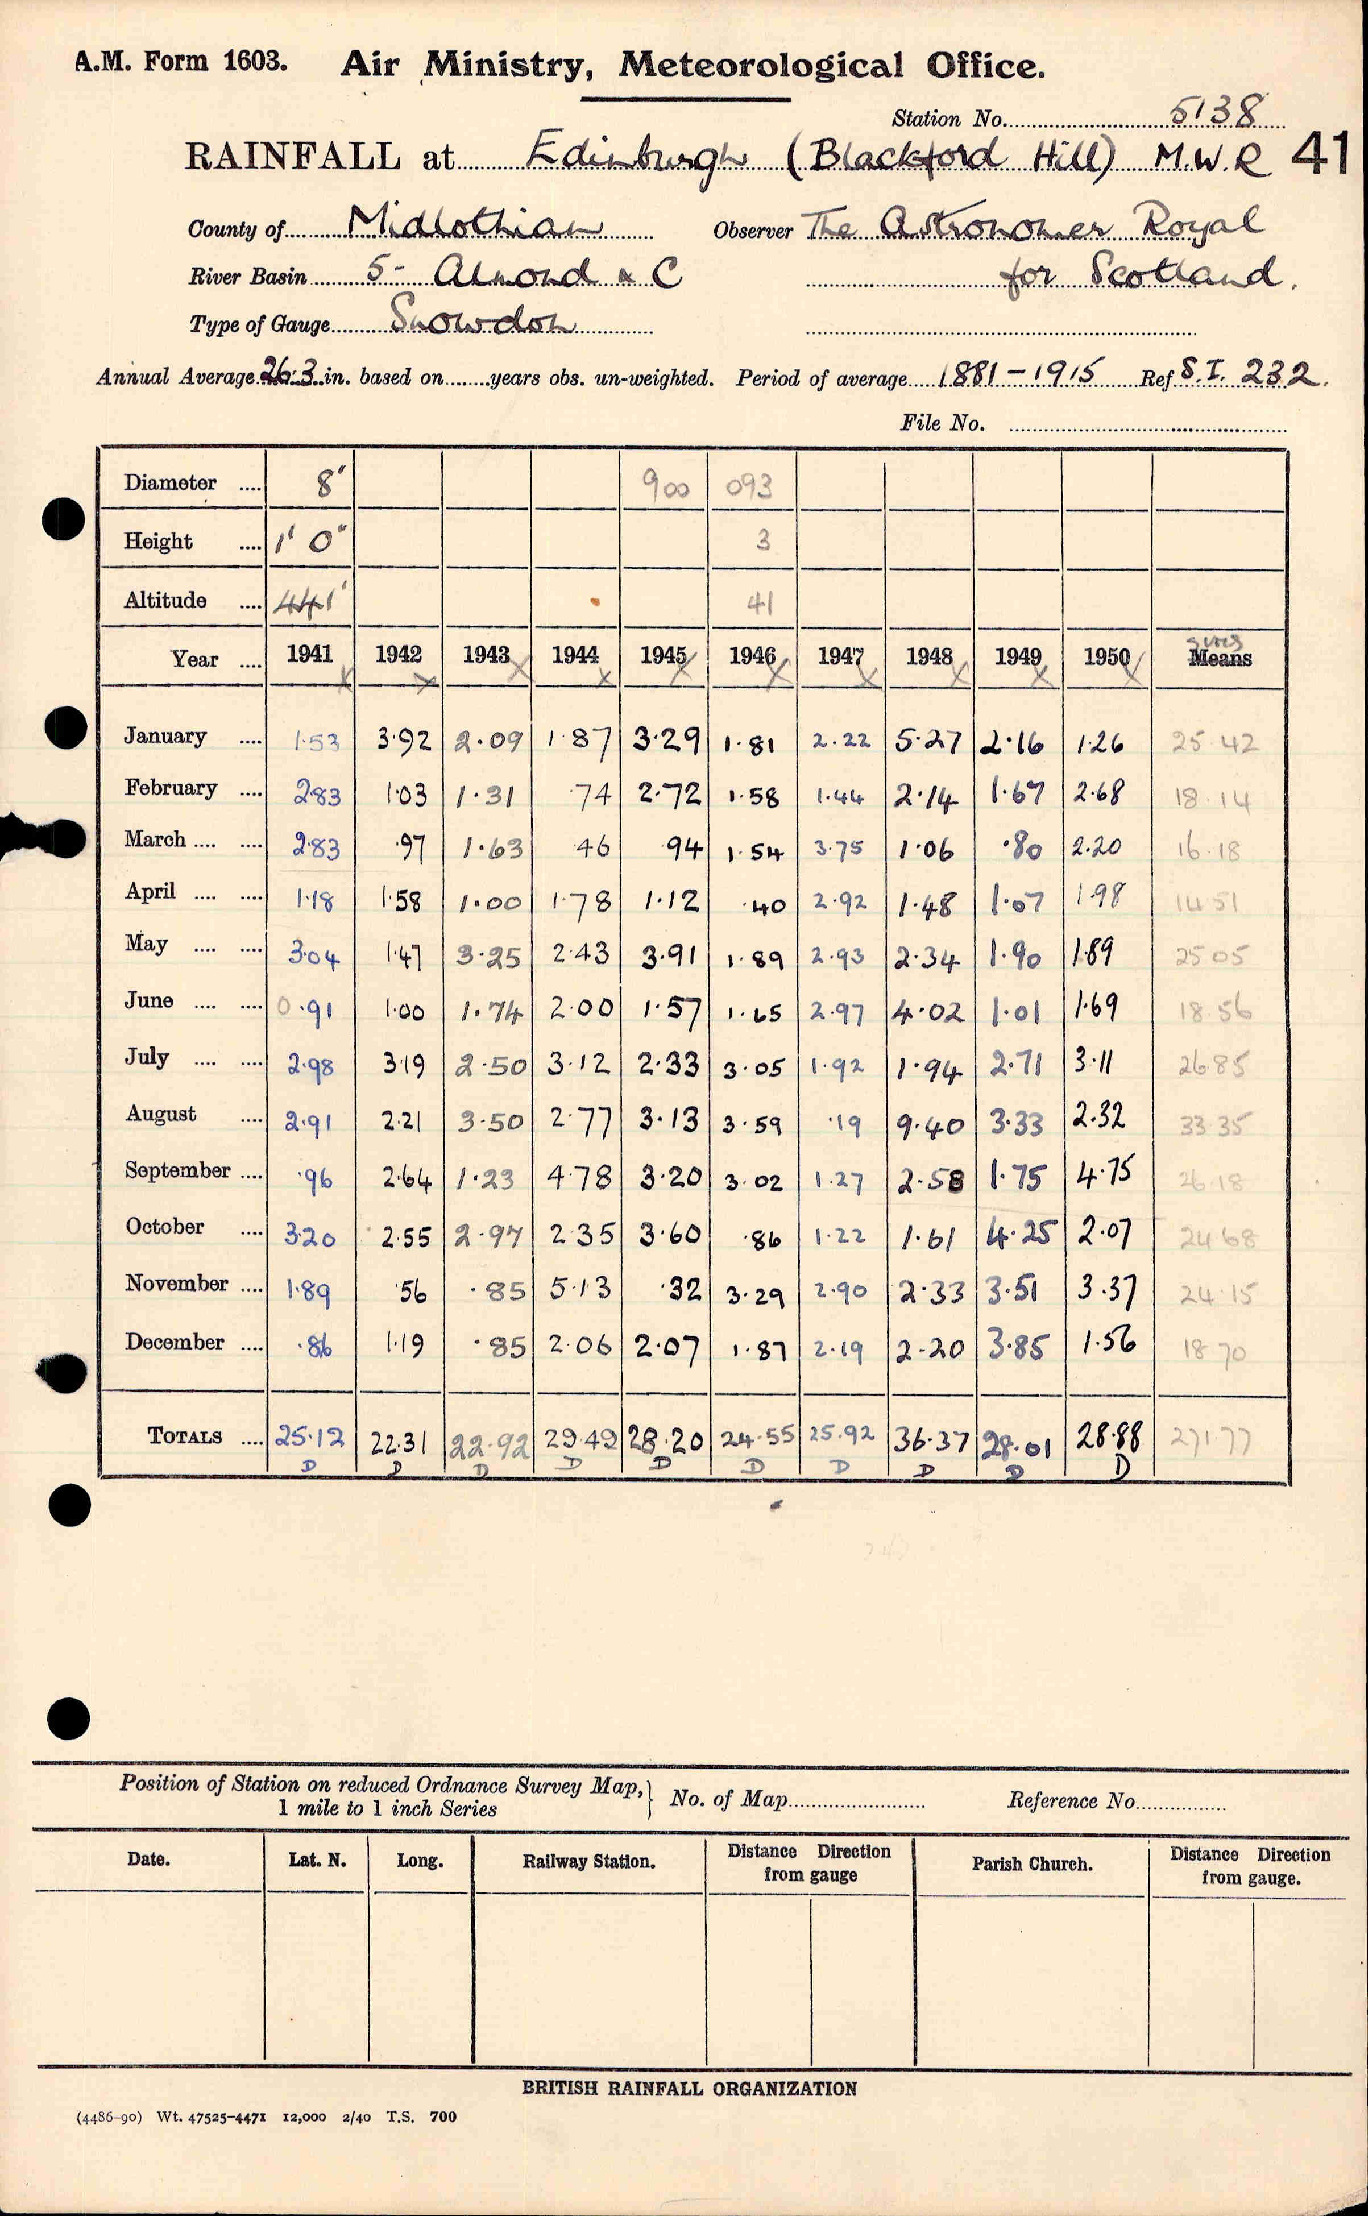 A.M. Form 1603. Air Ministry, Meteorological Office.
Station No. 5138
RAINFALL at Edinburgh (Blackford Hill) M.W.R 41
County of Midlothian Observer The Astronomer Royal
River Basin 5- Almond & C for Scotland.
Type of Gauge Snowdon
Annual Average 26.3 in. based on years obs. un-weighted. Period of average 1881-1915 Ref S.I. 232.
File No.
Diameter 8" 900 093
Height 1' 0" 3
Altitude 441' 41
Year 1941 1942 1943 1944 1945 1946 1947 1948 1949 1950 Means
January 1.53 3.92 2.09 1.87 3.29 1.81 2.22 5.27 2.16 1.26 25.42
February 2.83 1.03 1.31 .74 2.72 1.58 1.44 2.14 1.67 2.68 18.14
March 2.83 .97 1.63 .46 .94 1.54 3.75 1.06 .80 2.20 16.18
April 1.18 1.58 1.00 1.78 1.12 .40 2.92 1.48 1.07 1.98 14.51
May 3.04 1.47 3.25 2.43 3.91 1.89 2.93 2.34 1.90 1.89 25.05
June 0.91 1.00 1.74 2.00 1.57 1.65 2.97 4.02 1.01 1.69 18.56
July 2.98 3.19 2.50 3.12 2.33 3.05 1.92 1.94 2.71 3.11 26.85
August 2.91 2.21 3.50 2.77 3.13 3.59 .19 9.40 3.33 2.32 33.35
September .96 2.64 1.23 4.78 3.20 3.02 1.27 2.58 1.75 4.75 26.18
October 3.20 2.55 2.97 2.35 3.60 .86 1.22 1.61 4.25 2.07 24.68
November 1.89 .56 .85 5.13 .32 3.29 2.90 2.33 3.51 3.37 24.15
December .86 1.19 .85 2.06 2.07 1.87 2.19 2.20 3.85 1.56 18.70
TOTALS 25.12 22.31 22.92 29.49 28.20 24.55 25.92 36.37 28.01 28.88 271.77
D D D D D D D D D D
Position of Station on reduced Ordnance Survey Map, No. of Map Reference No.
1 mile to 1 inch Series
Date. Lat. N. Long. Railway Station. Distance Direction from gauge Parish Church. Distance Direction from gauge.
BRITISH RAINFALL ORGANIZATION
(4486-90) Wt. 47525-4471 12,000 2/40 T.S. 700